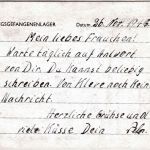 GSGEFANGENENLAGER DATUM 26. Nov. 194
Mein liebes Frauchen!
Warte täglich auf Antwort
von Dir. Du kannst beliebig
schreiben. Von Klere noch kein
Nachricht.
Herzliche Grüsse und
viele Küsse Dein